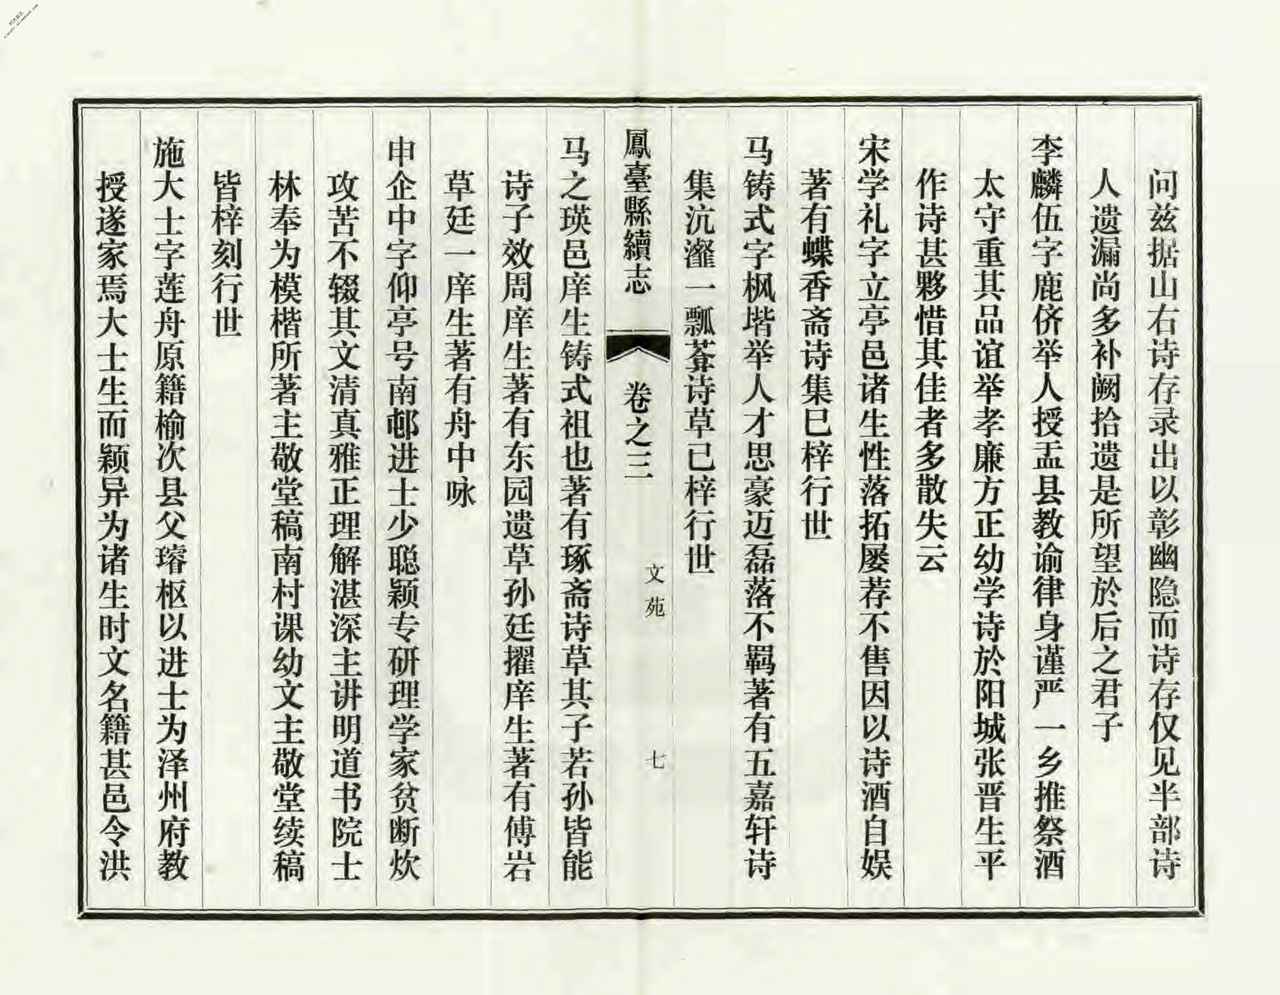 问兹据山右诗存录出以彰幽隐而诗存仅见半部诗
人遗漏尚多补阙拾遗是所望於后之君子
李麟伍字鹿侪举人授盂县教谕律身谨严一乡推祭酒
太守重其品谊举孝廉方正幼学诗於阳城张晋生平
作诗甚夥惜其佳者多散失云
宋学礼字立亭邑诸生性落拓屡荐不售因以诗酒自娱
著有蝶香斋诗集巳梓行世
马铸式字枫堦举人才思豪迈磊落不羁著有五嘉轩诗
集沆瀣一瓢葊诗草已梓行世
鳳臺縣續志
卷之三
文苑
七
马之瑛邑庠生铸式祖也著有琢斋诗草其子若孙皆能
诗子效周庠生著有东园遗草孙廷擢庠生著有傅岩
草廷一庠生著有舟中咏
申企中字仰亭号南邨进士少聪颖专研理学家贫断炊
攻苦不辍其文清真雅正理解湛深主讲明道书院士
林奉为模楷所著主敬堂稿南村课幼文主敬堂续稿
皆梓刻行世
施大士字莲舟原籍榆次县父璿枢以进士为泽州府教
授遂家焉大士生而颖异为诸生时文名籍甚邑令洪